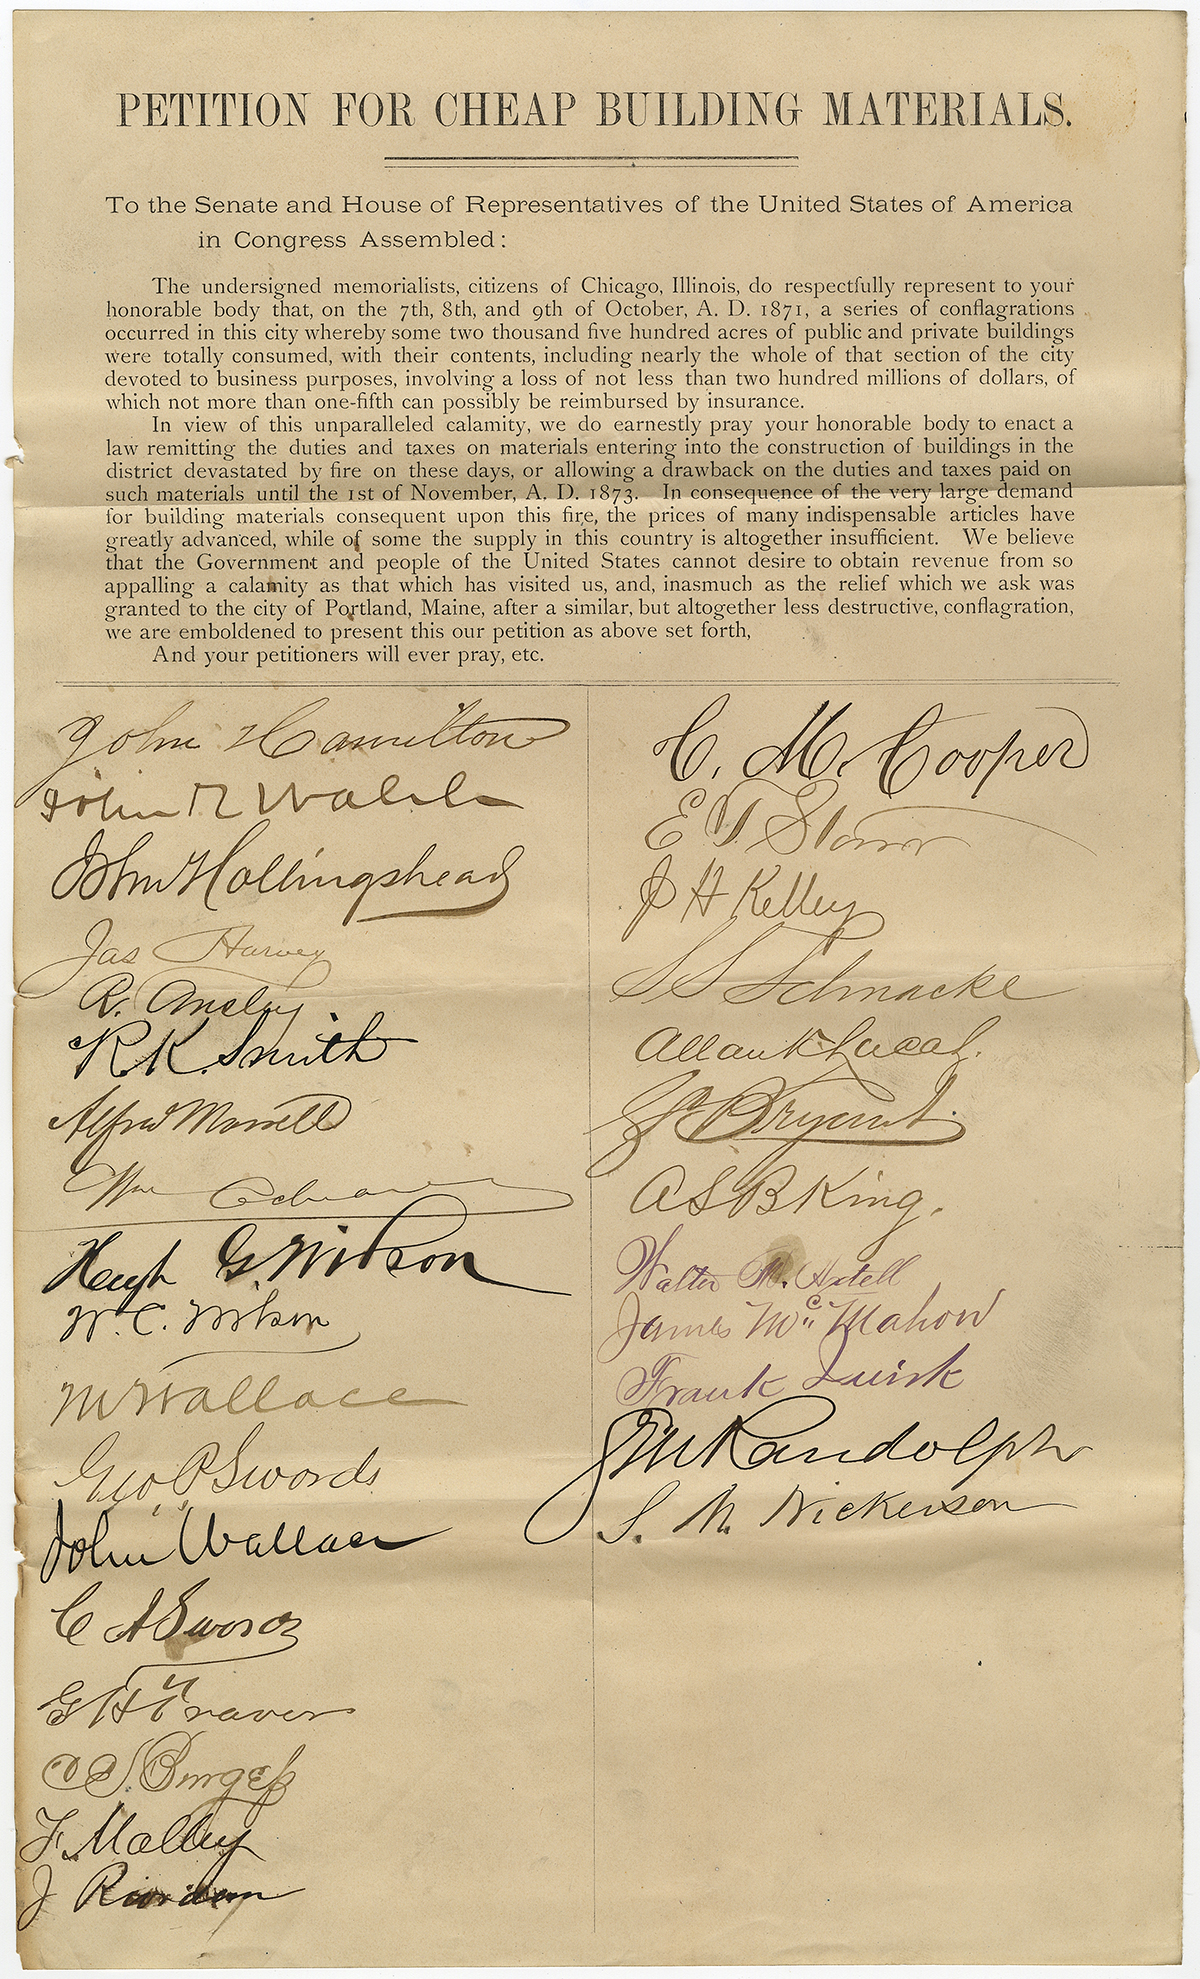 PETITION FOR CHEAP BUILDING MATERIALS.
To the Senate and House of Representatives of the United States of America
in Congress Assembled:
The undersigned memorialists, citizens of Chicago, Illinois, do respectfully represent to your
honorable body that, on the 7th, 8th, and 9th of October, A. D. 1871, a series of conflagrations
occurred in this city whereby some two thousand five hundred acres of public and private buildings
were totally consumed, with their contents, including nearly the whole of that section of the city
devoted to business purposes, involving a loss of not less than two hundred millions of dollars, of
which not more than one-fifth can possibly be reimbursed by insurance.
In view of this unparalleled calamity, we do earnestly pray your honorable body to enact a
law remitting the duties and taxes on materials entering into the construction of buildings in the
district devastated by fire on these days, or allowing a drawback on the duties and taxes paid on
such materials until the 1st of November, A. D. 1873. In consequence of the very large demand
for building materials consequent upon this fire, the prices of many indispensable articles have
greatly advanced, while of some the supply in this country is altogether insufficient. We believe
that the Government and people of the United States cannot desire to obtain revenue from so
appalling a calamity as that which has visited us, and, inasmuch as the relief which we ask was
granted to the city of Portland, Maine, after a similar, but altogether less destructive, conflagration,
we are emboldened to present this our petition as above set forth,
And your petitioners will ever pray, etc.
John Hamilton
John R Walsh
John Hollingshead
Jas Harvey
R. Ansley
R. K. Smith
Alfred Morrell
Wm
Hugh G. Wilson
W. C. Wilson
M Wallace
Geo P Swords
John Wallace
C A Swords
G H Traver
S. Burgess
F. Malley
J Riordan
C. M. Cooper
E T Starr
J H Kelley
S S Schnacke
Bryant.
A S B King.
Walter
James McMahon
Frank Quirk
Randolph
S. M. Nickerson